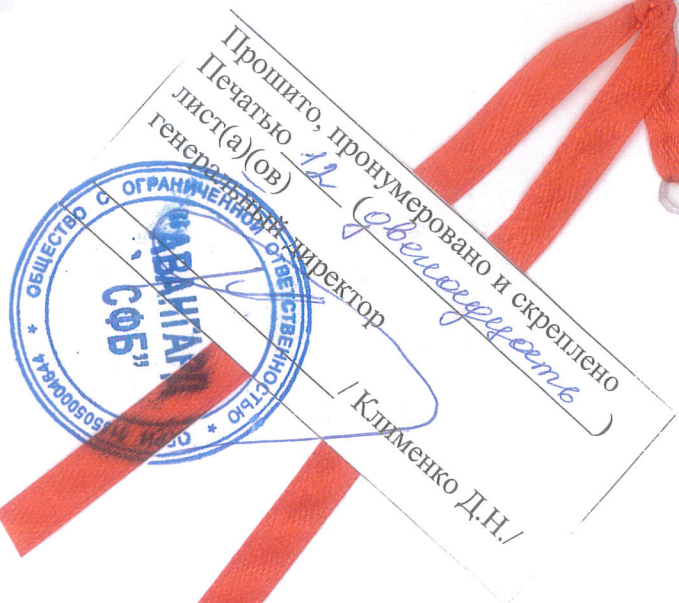 Прошито, пронумеровано и скреплено
Печатью 12 (двенадцать)
лист(а)(ов)
генеральный директор
/ Клименко Д.Н./
ОБЩЕСТВО С ОГРАНИЧЕННОЙ ОТВЕТСТВЕННОСТЬЮ
"АВАНГАРД
СФБ"